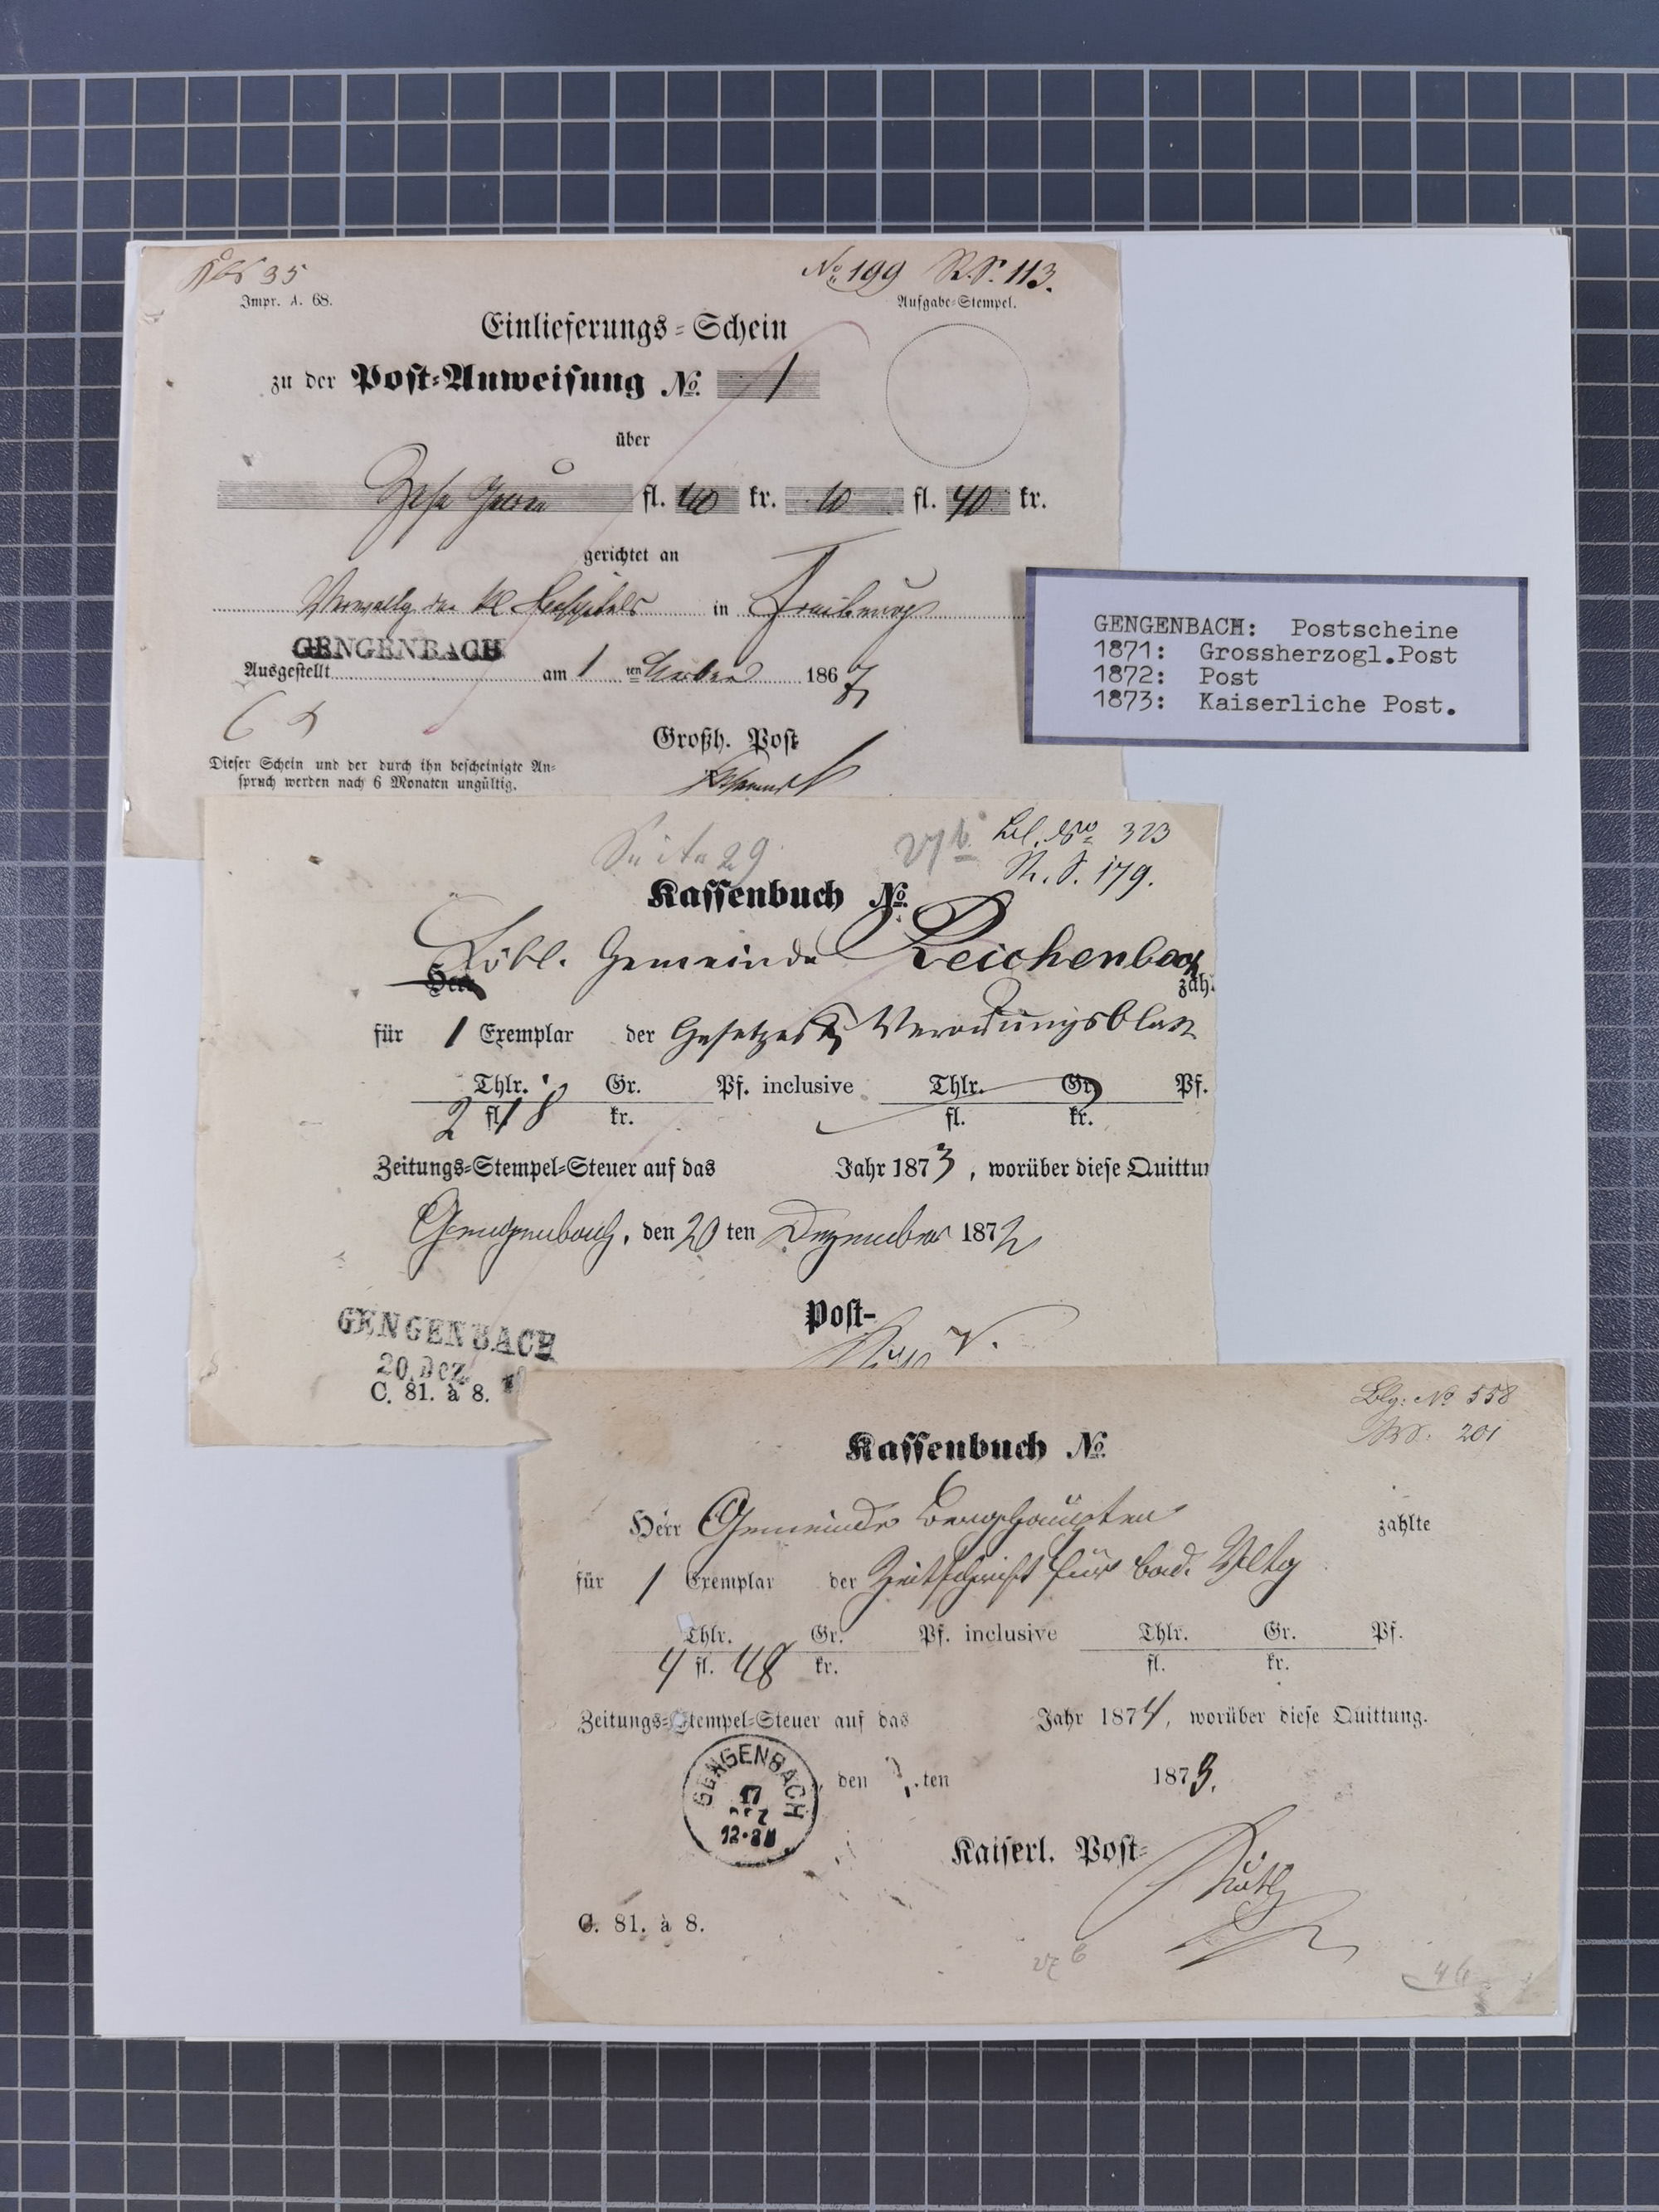 35
No 199 R.S. 113.
Impr. A. 68.
Aufgabe-Stempel.
Einlieferungs-Schein
zu der Post-Anweisung No. 1
über
Zehn Gulden fl. 40 kr. 10 fl. 40 kr.
gerichtet an
in Freiburg
GENGENBACH
Ausgestellt am 1 ten 186
Großh. Post
Dieser Schein und der durch ihn bescheinigte An-
spruch werden nach 6 Monaten ungültig.
GENGENBACH: Postscheine
1871: Grossherzogl.Post
1872: Post
1873: Kaiserliche Post.
Seite 29
No 323
R. S. 179.
Kassenbuch No.
Löbl. Gemeinde Reichenbach
Herr
zah
für 1 Exemplar der Gesetzes & Verordnungsblatt
Thlr. Gr. Pf. inclusive Thlr. Gr. Pf.
2 fl. 18 kr. fl. kr.
Zeitungs-Stempel-Steuer auf das Jahr 1873, worüber diese Quittun
Gengenbach, den 20 ten Dezember 1872
Post-
GENGENBACH
20. DEZ.
C. 81. à 8.
Blg: No 558
RS: 201
Kassenbuch No.
Herr Gemeinde Berghaupten zahlte
für 1 Exemplar der Zeitschrift für bad. Vltg
Thlr. Gr. Pf. inclusive Thlr. Gr. Pf.
4 fl. 48 kr. fl. kr.
Zeitungs-Stempel-Steuer auf das Jahr 1874, worüber diese Quittung.
GENGENBACH
17
DEZ
den ten 1873.
Kaiserl. Post-
C. 81. à 8.